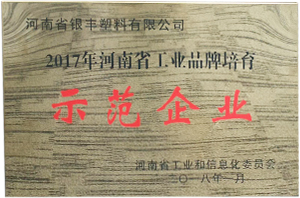 河南省银丰塑料有限公司
2017年河南省工业品牌培育
示范企业
河南省工业和信息化委员会
二〇一八年一月